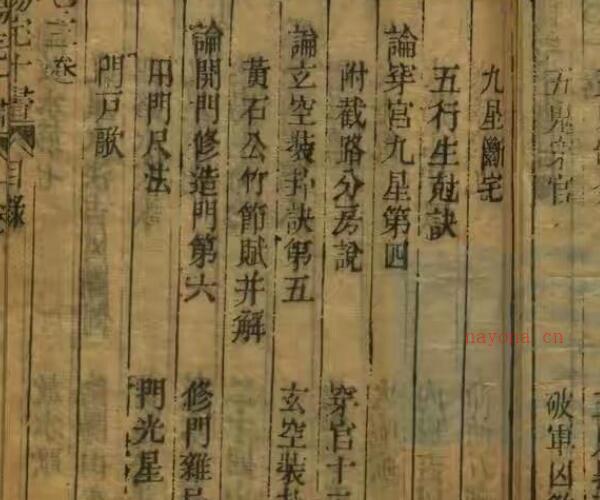 五鬼穿宮
破軍凶
九星斷宅
五行生尅訣
論穿宮九星第四
附截路分房說
穿宮十二
論玄空裝卦訣第五
玄空裝卦
黃石公竹節賦并解
論開門修造門第六
修門雜
用門尺法
門光星
門戶歌
陽宅十書
目錄
nayona.cn